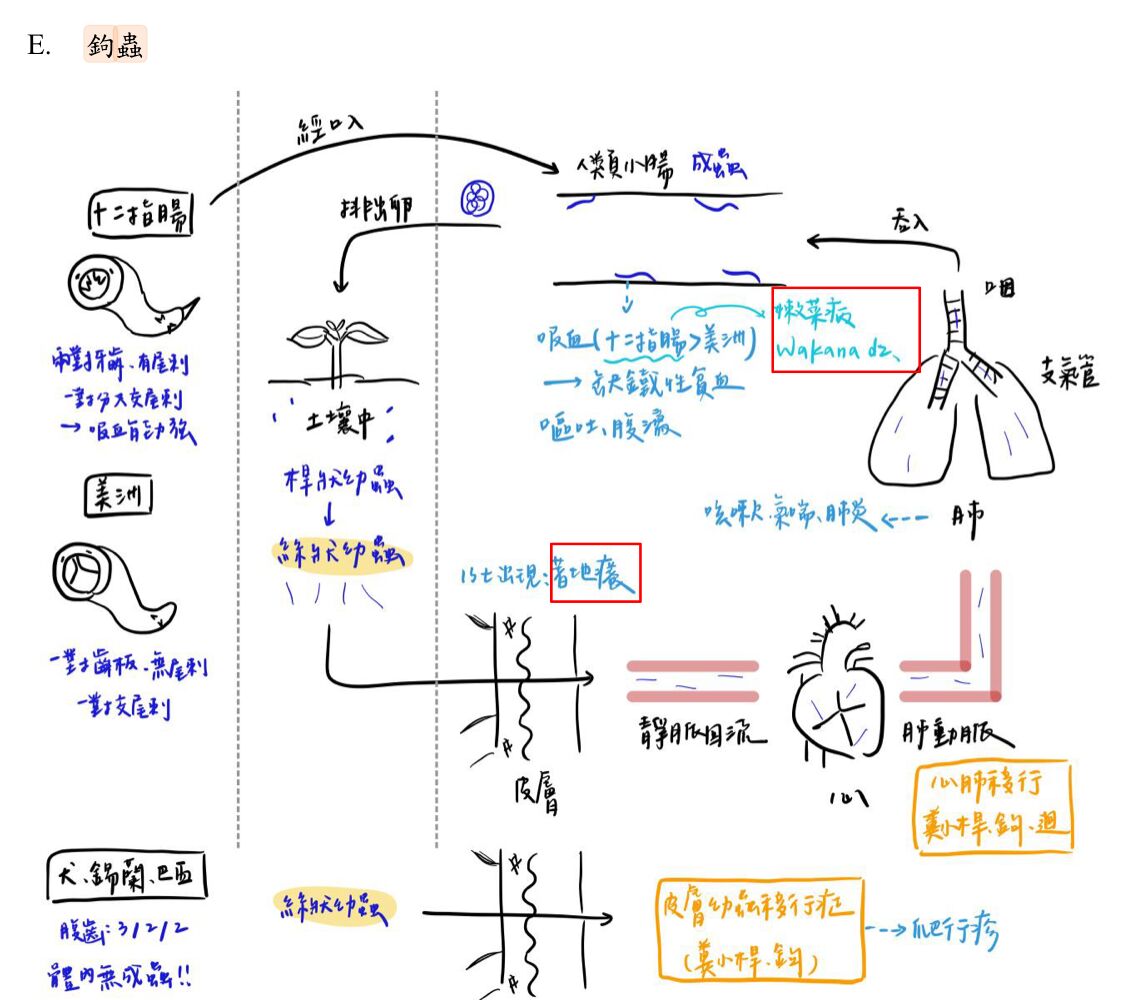 E. 鉤蟲
經口入
人類小腸 成蟲
十二指腸
排出卵
吞入
咽
兩對牙齒、有尾刺
一對分叉交尾刺
→ 吸血能力強
吸血(十二指腸>美洲)
嫩菜病
Wakana dz、
→ 缺鐵性貧血
嘔吐、腹瀉
支氣管
土壤中
美洲
桿狀幼蟲
絲狀幼蟲
咳嗽、氣喘、肺炎
肺
一對齒板、無尾刺
一對交尾刺
1st出現:著地癢
皮膚
靜脈回流
心
肺動脈
心肺移行
糞小桿、鉤、迴
犬、錫蘭、巴西
腹齒:3/2/2
體內無成蟲!!
絲狀幼蟲
皮膚幼蟲移行症
(糞小桿、鉤)
爬行疹